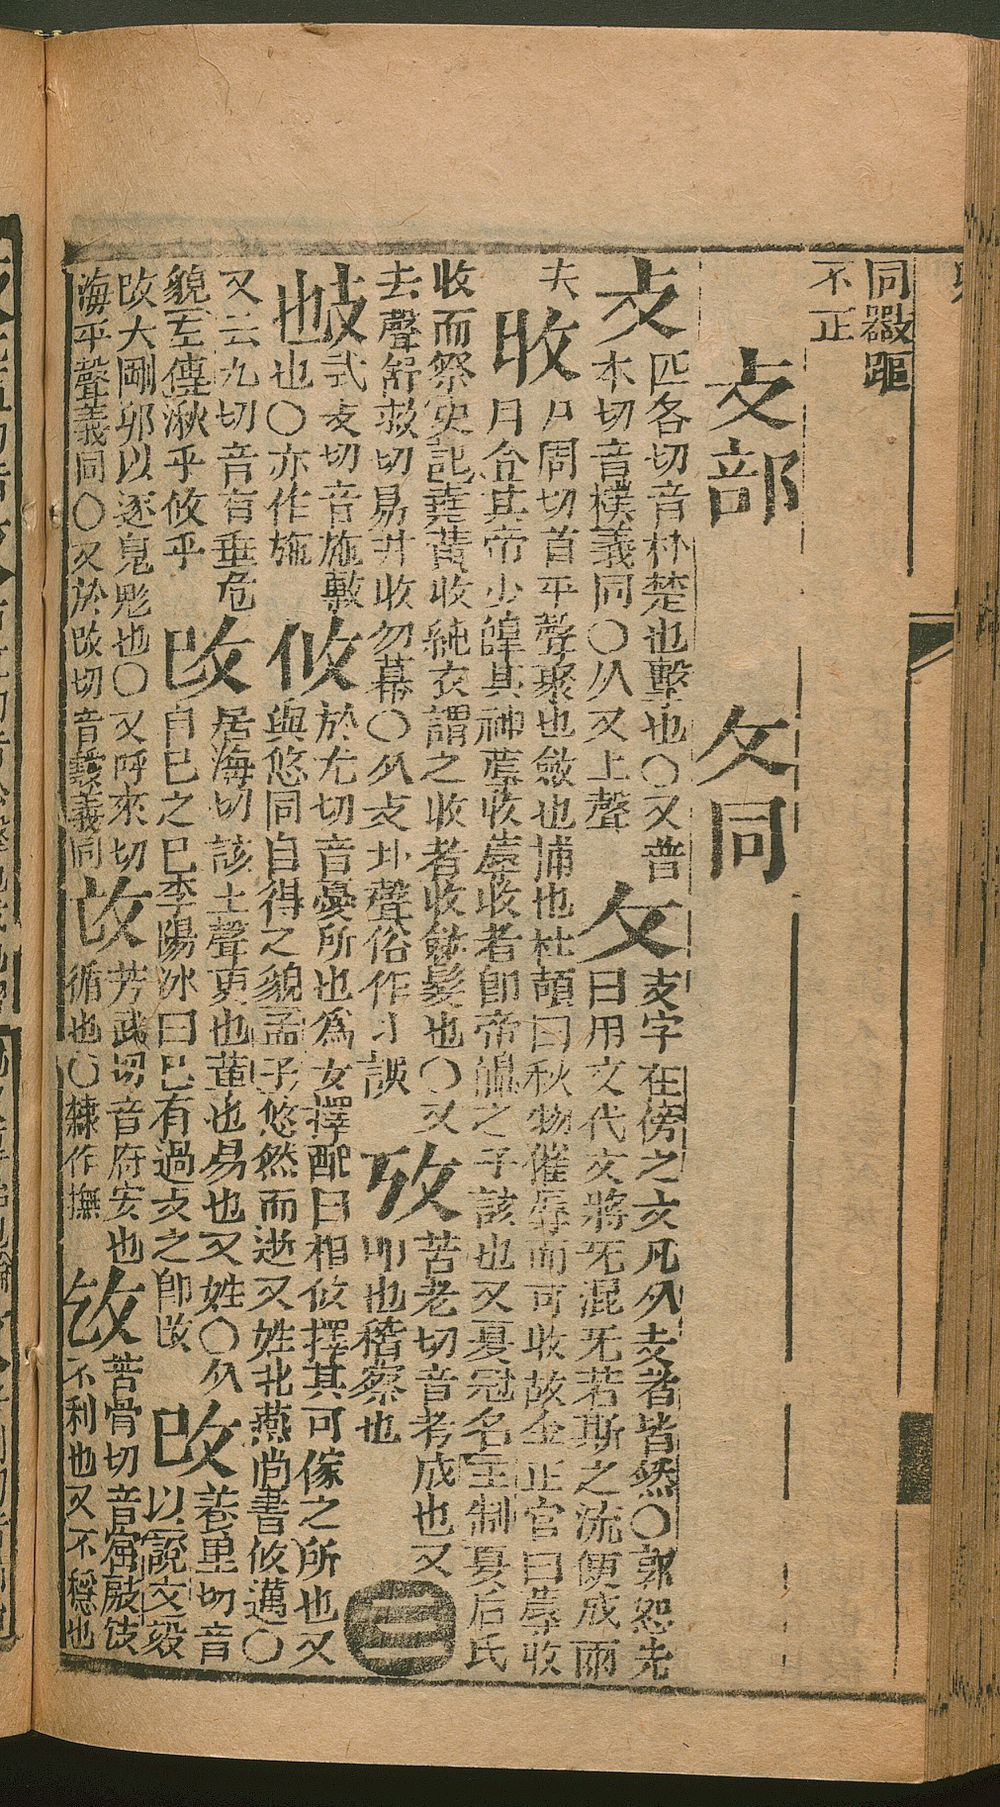 同敺䮐
不正
攴部　攵同
攴 匹各切音朴楚也擊也○又普
木切音樸義同○从又上聲
攵 攴字在傍之文凡从攴者皆然○郭恕先
曰用文代攵將无混旡若斯之流便成兩
失
收 尸周切首平聲聚也斂也捕也杜頠曰秋物催辱而可收故金正官曰蓐收
月令其帝少皥其神蓐收蓐收者卽帝皥之子該也又夏冠名王制夏后氏
收而祭史記堯黄收純衣謂之收者收斂髮也○又
去聲舒救切易井收勿幕○从攴丩聲俗作刂誤
攷 苦老切音考成也又
叩也稽察也
𢻫 式支切音施敷
也也○亦作施
攸 於尤切音憂所也爲女擇配曰相攸擇其可嫁之所也又
與悠同自得之貌孟子悠然而逝又姓北燕尚書攸邁○
又云九切音有垂危
貌左傳湫乎攸乎
改 居海切該上聲更也革也易也又姓○从
自己之己李陽冰曰己有過攴之卽改
攺 養里切音
以說文毅
攺大剛卯以逐鬼鬽也○又呼來切
海平聲義同○又於改切音𣫭義同
㪅 芳武切音府安也
循也○隸作撫
㪂 苦骨切音窟㪂
不利也又不穩也